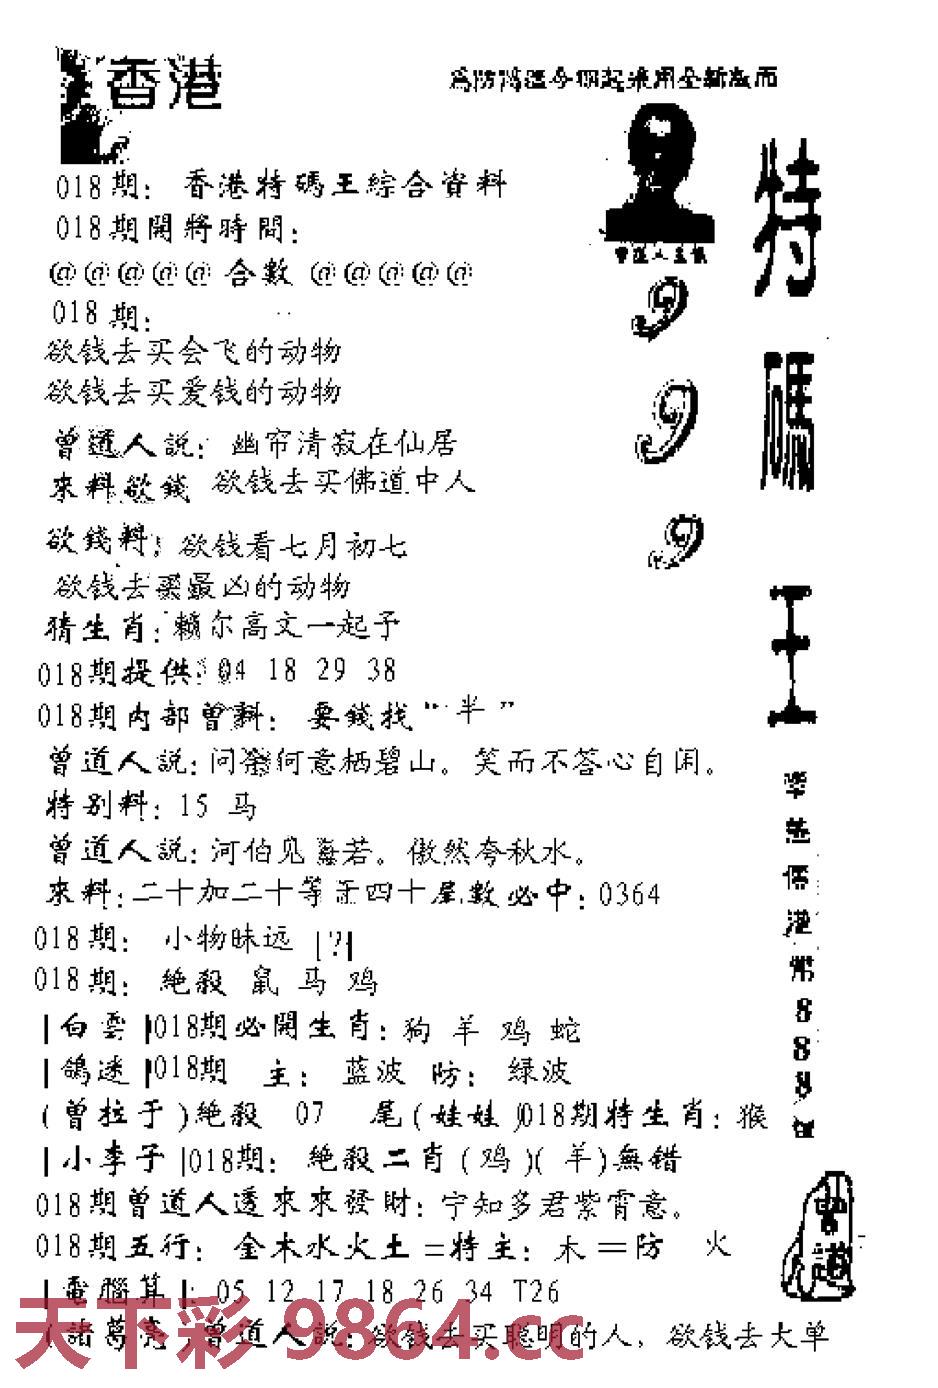 香港
為防偽冒今期起採用全新版面
特碼王
999
曾道人主俵
018期：香港特碼王綜合資料
018期開將時間：
@@@@@ 合數 @@@@@
018期：
欲钱去买会飞的动物
欲钱去买爱钱的动物
曾道人説：幽帘清寂在仙居
來料欲錢 欲钱去买佛道中人
欲錢料：欲钱看七月初七
欲钱去买最凶的动物
猜生肖：赖尔高文一起予
018期提供：04 18 29 38
018期内部曾料：要錢找“半”
曾道人説：问爺何意栖碧山。笑而不答心自闲。
特别料：15 马
曾道人説：河伯见海若。傲然夸秋水。
來料：二十加二十等于四十尾數必中：0364
018期：小物昧远 [?]
018期：絶殺 鼠 马 鸡
|白雲|018期必開生肖：狗 羊 鸡 蛇
|鴿迷|018期 主：蓝波 防：绿波
(曾拉于)絶殺 07 尾(娃娃)018期特生肖：猴
|小李子|018期：絶殺二肖(鸡)(羊)無错
018期曾道人透來來發財：宁知多君紫霄意。
018期五行：金木水火土=特主：木=防 火
|電腦算|：05 12 17 18 26 34 T26
(諸葛亮)曾道人説：欲钱去买聪明的人，欲钱去大单
888
曾道
天下彩 9864.cc